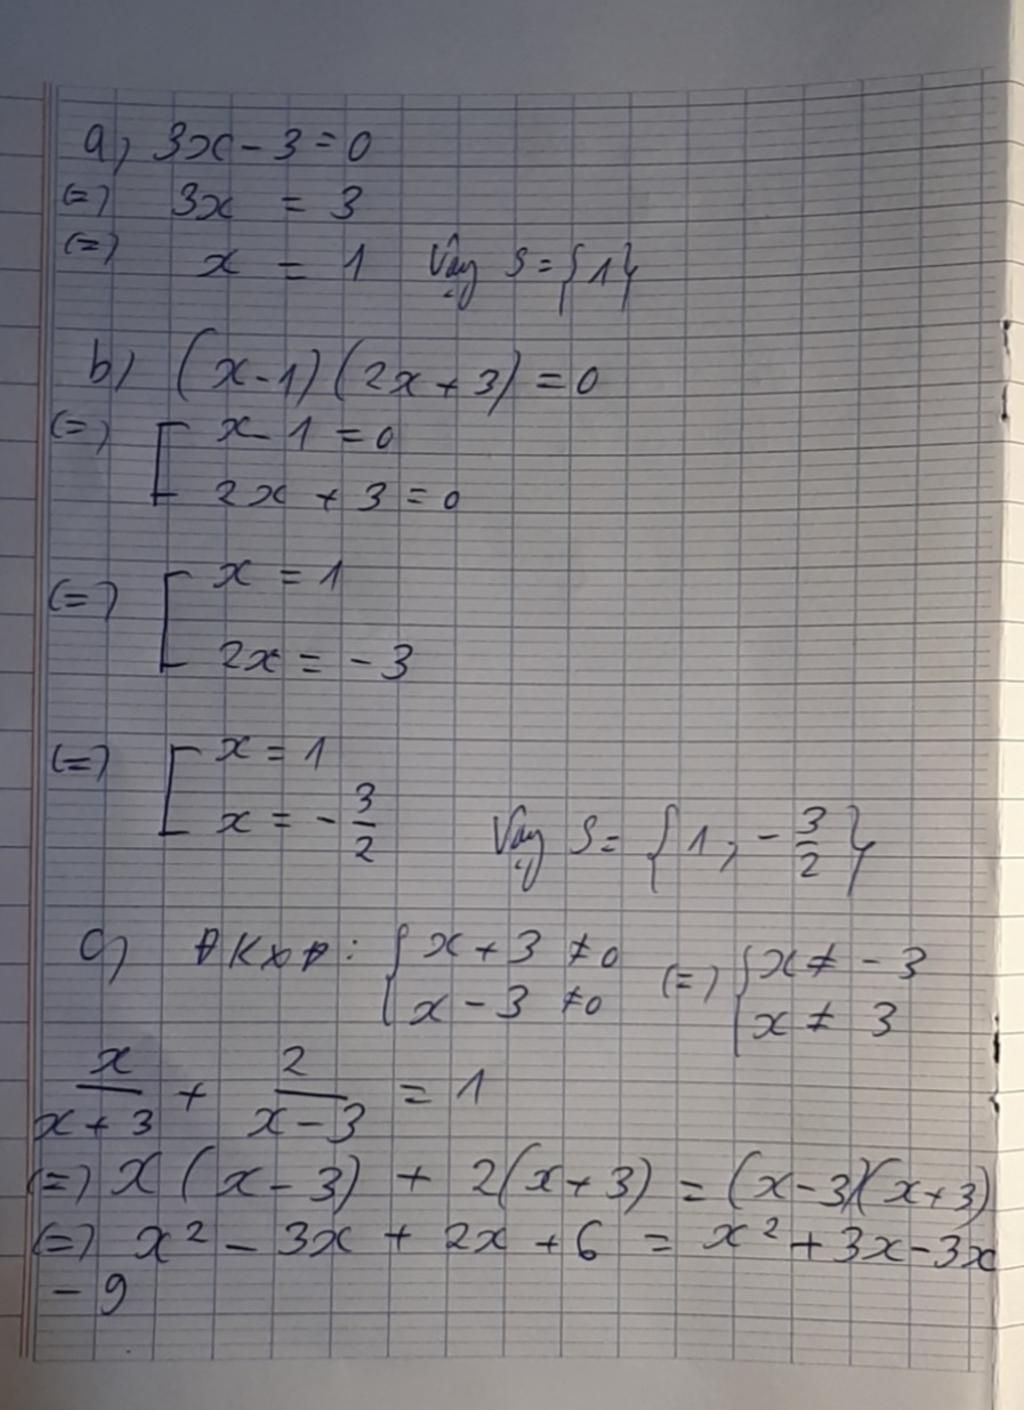 a) 3x - 3 = 0
(=) 3x = 3
(=) x = 1 Vậy S = {1}
b) (x - 1)(2x + 3) = 0
(=) [ x - 1 = 0
2x + 3 = 0
(=) [ x = 1
2x = - 3
(=) [ x = 1
x = - 3/2 Vậy S = {1; - 3/2}
c) ĐKXĐ: { x + 3 ≠ 0 (=) { x ≠ - 3
x - 3 ≠ 0 x ≠ 3
x/(x + 3) + 2/(x - 3) = 1
(=) x(x - 3) + 2(x + 3) = (x - 3)(x + 3)
(=) x² - 3x + 2x + 6 = x² + 3x - 3x
- 9